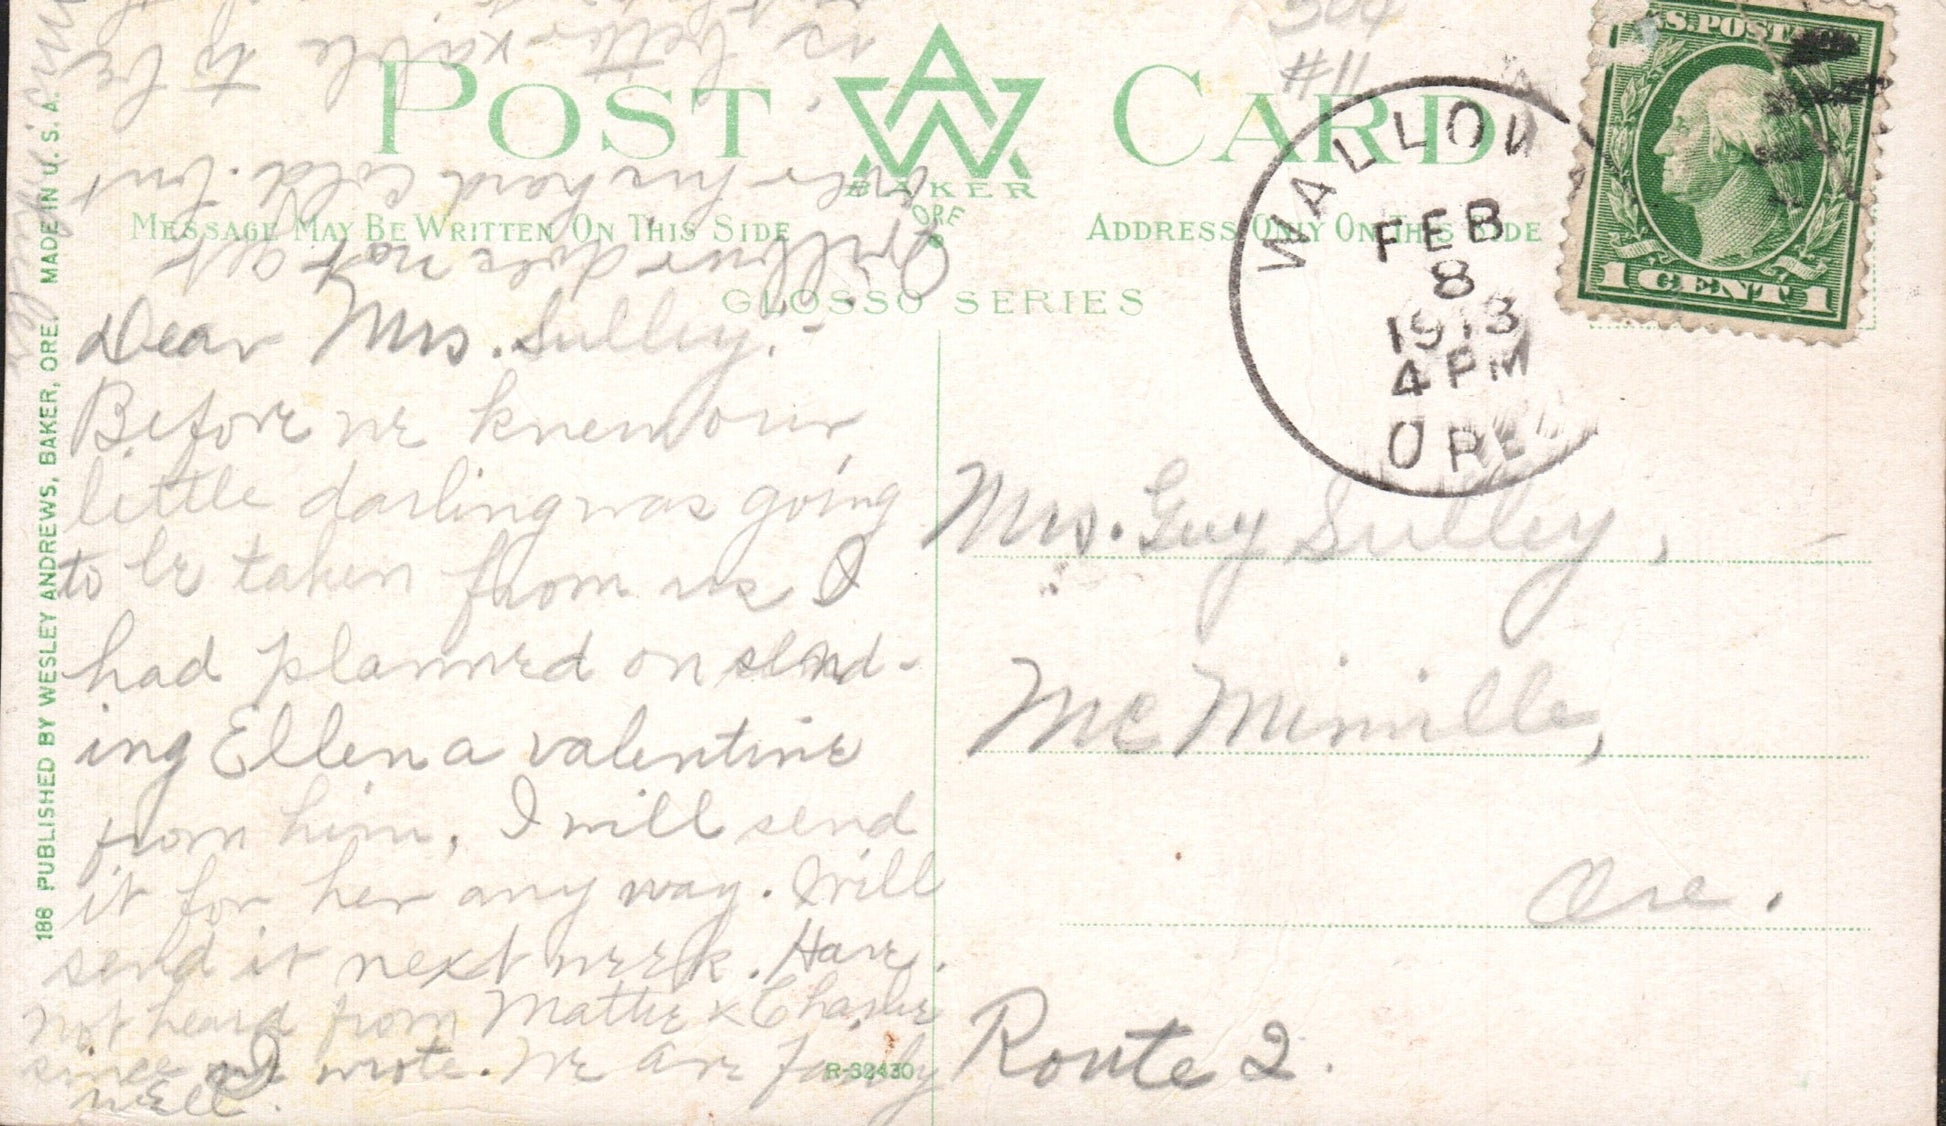 504
#11
POST CARD
BAKER
ORE
MESSAGE MAY BE WRITTEN ON THIS SIDE
ADDRESS ONLY ON THIS SIDE
GLOSSO SERIES
U.S. POSTAGE
1 CENT 1
WALLOWA
FEB
8
1913
4 PM
ORE
Dear Mrs. Sulley:-
Before we knew our
little darling was going
to be taken from us I
had planned on send-
ing Ellen a valentine
from him, I will send
it for her any way. Will
send it next week. Have
not heard from Mattie & Charlie
since I wrote. We are fairly
well.
Wilbur does not get
over his hard cold. but
is better & able to be
Mrs. Guy Sulley,
McMinville,
Ore.
Route 2.
R-32430
188 PUBLISHED BY WESLEY ANDREWS, BAKER, ORE. MADE IN U. S. A.
Mrs.